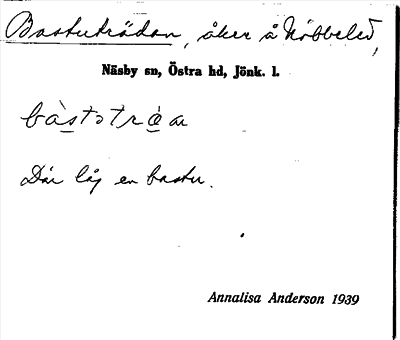 Basturädan, åker å Nöbbeled,
Näsby sn, Östra hd, Jönk. l.
Där låg en bastu.
Annalisa Anderson 1939